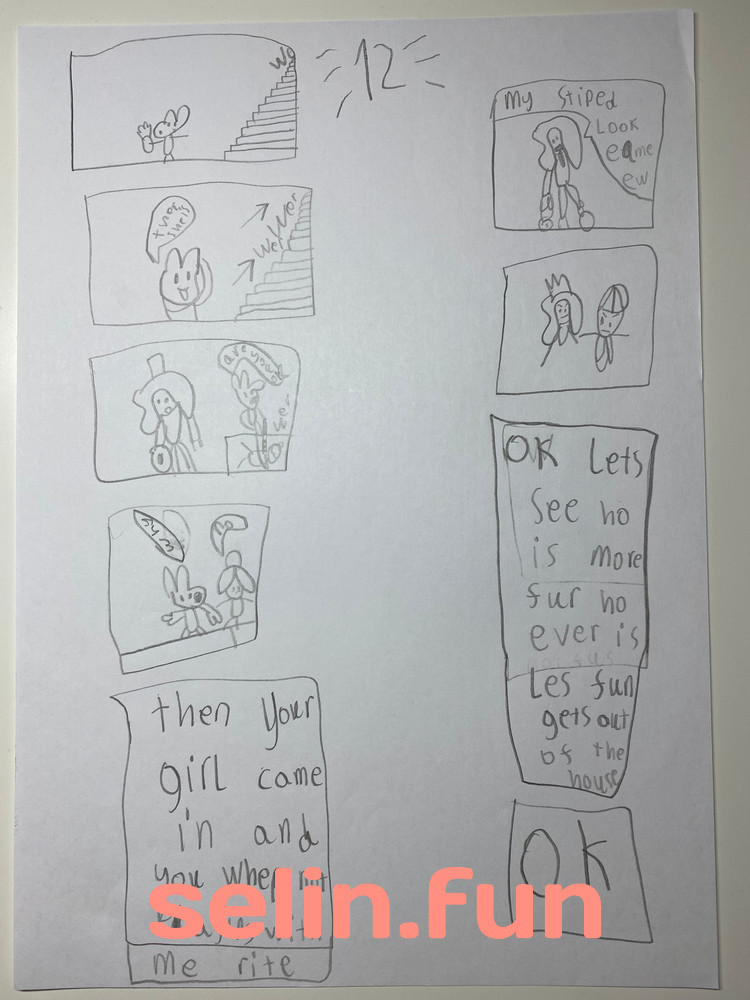 12
Wo
Wer Wer
are you
ok
wer
then your
girl came
in and
you when not
me rite
My stiped
Look
eame
ew
OK Lets
see ho
is more
fur ho
ever is
Les fun
gets out
of the
house
OK
selin.fun